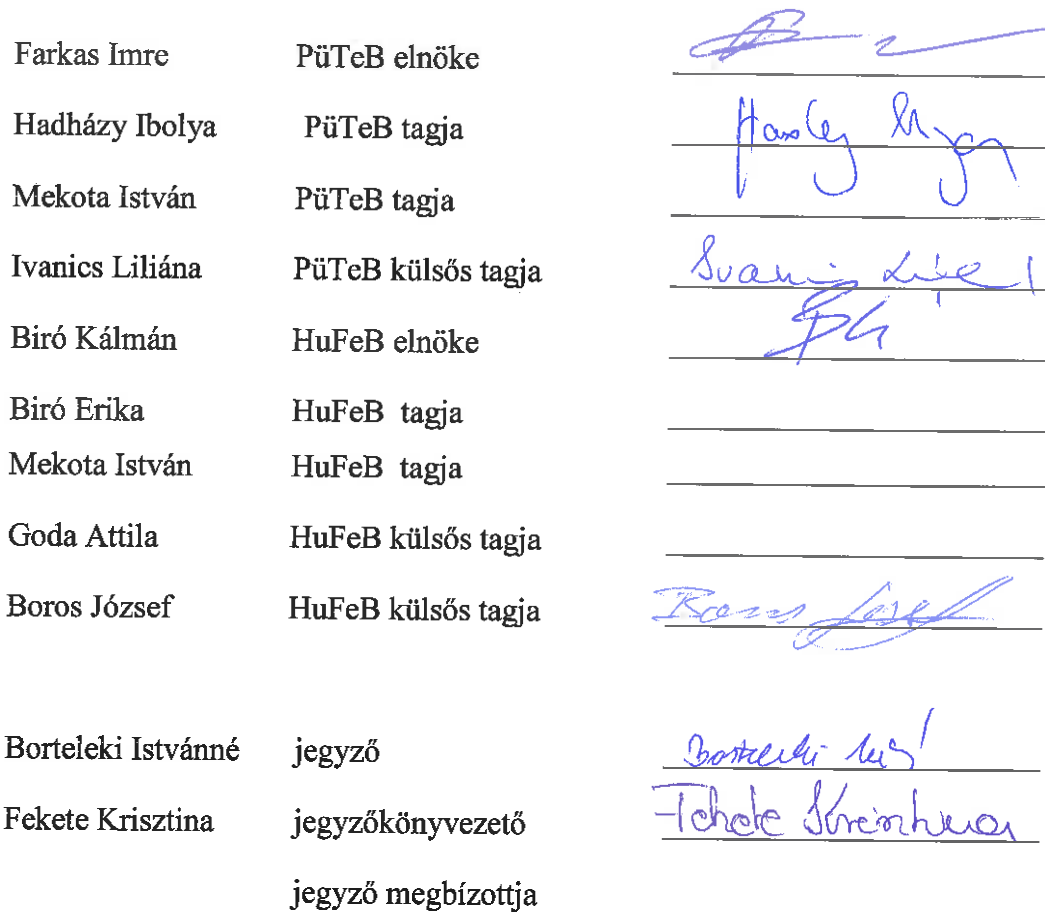 Farkas Imre PüTeB elnöke
Hadházy Ibolya PüTeB tagja
Mekota István PüTeB tagja
Ivanics Liliána PüTeB külsős tagja
Biró Kálmán HuFeB elnöke
Biró Erika HuFeB tagja
Mekota István HuFeB tagja
Goda Attila HuFeB külsős tagja
Boros József HuFeB külsős tagja Boros József
Borteleki Istvánné jegyző Borteleki
Fekete Krisztina jegyzőkönyvezető Fekete Krisztina
jegyző megbízottja